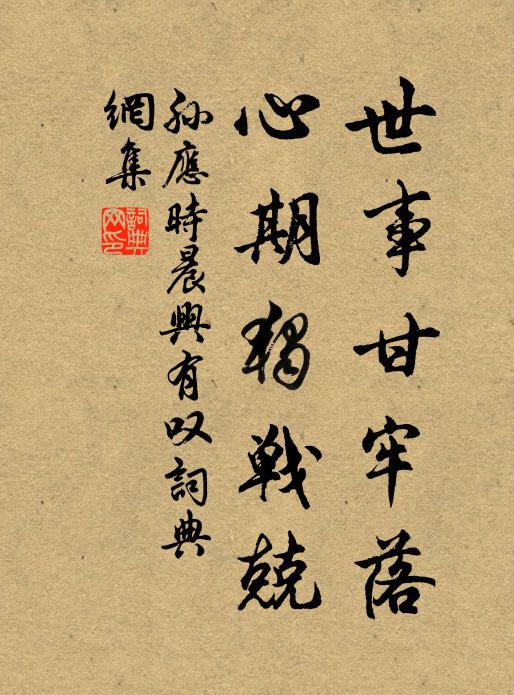 世事甘牢落
心期獨戰兢
孫應時晨興有叹詞典
網集
詞典網印